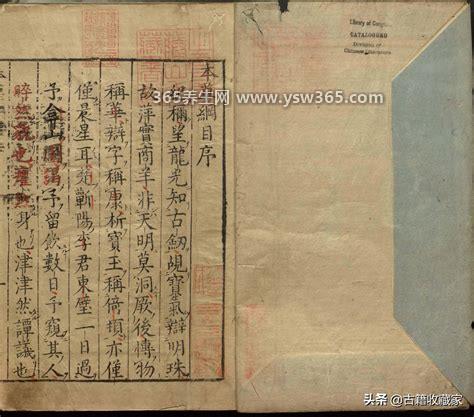 Library of Congress
CATALOGUED
Division of
Chinese Literature
本草綱目序
稱望龍光知古劒覘寳氣辯明珠
故萍實商羊非天明莫洞厥後博物
稱華辯字稱康析寳玉稱倚頓亦僅
僅晨星耳楚蘄陽李君東璧一日過
予弇山園謁予留飲數日予窺其人
睟然貌也癯然身也津津然譚議也
365养生网 www.ysw365.com
头条 @古籍收藏家